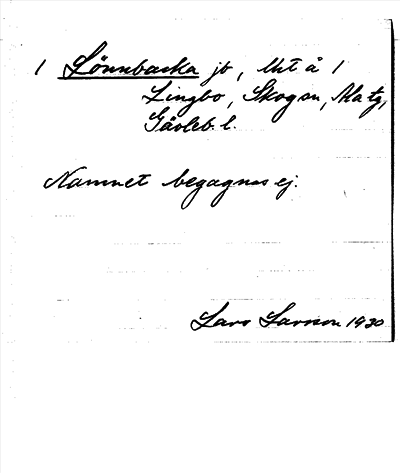 1 Lönnbacka jb, Uht å 1
Lingbo, Skogsn,
Gävleb. l.
Namnet begagnas ej.
Lars Larsson 1930